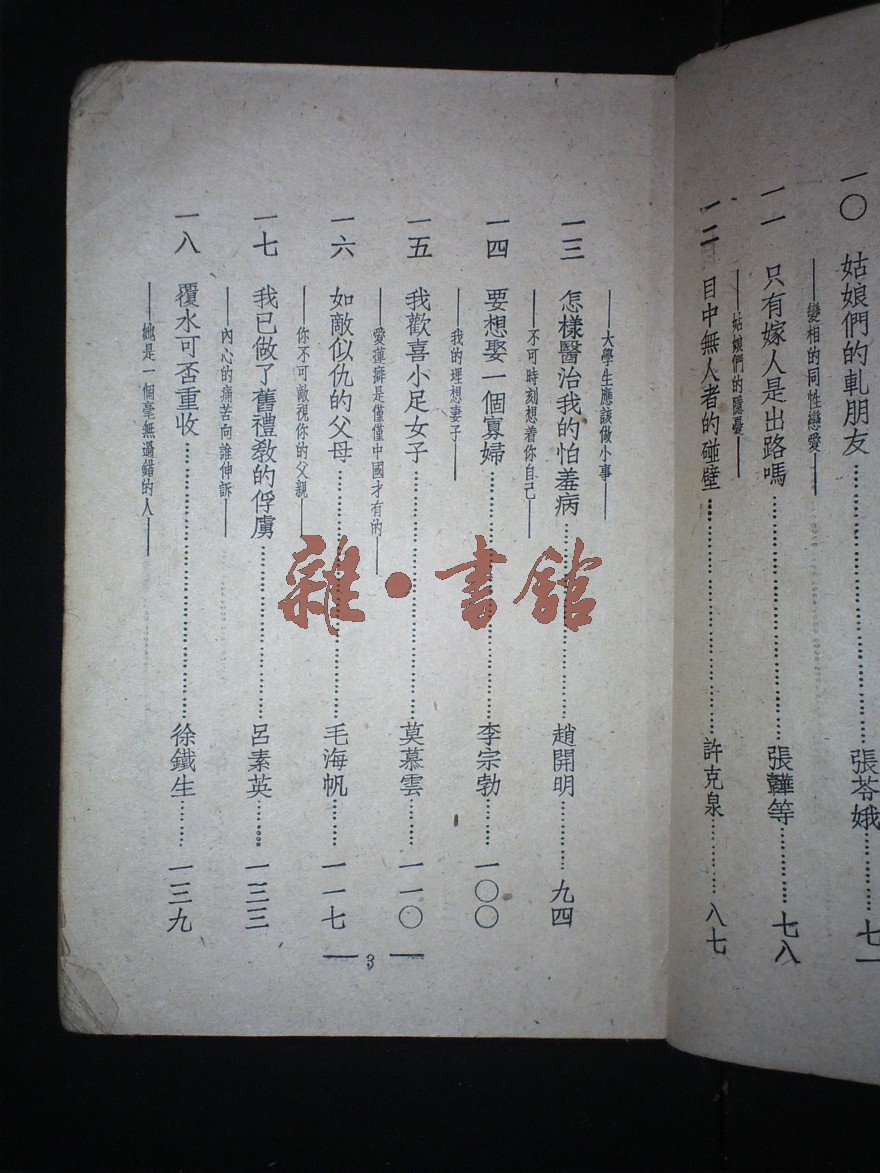 一〇 姑娘們的軋朋友……張苓娥……七一
——變相的同性戀愛——
一一 只有嫁人是出路嗎……張韡等……七八
——姑娘們的隱憂——
一二 目中無人者的碰壁……許克泉……八七
——大學生應該做小事——
一三 怎樣醫治我的怕羞病……趙開明……九四
——不可時刻想着你自己——
一四 要想娶一個寡婦……李宗勃……一〇〇
——我的理想妻子——
一五 我歡喜小足女子……莫慕雲……一一〇
——愛蓮癖是僅僅中國才有的——
一六 如敵似仇的父母……毛海帆……一一七
——你不可敵視你的父親——
一七 我已做了舊禮教的俘虜……呂素英……一三三
——內心的痛苦向誰伸訴——
一八 覆水可否重收……徐鐵生……一三九
——她是一個毫無過錯的人——
— 3 —
雜·書館